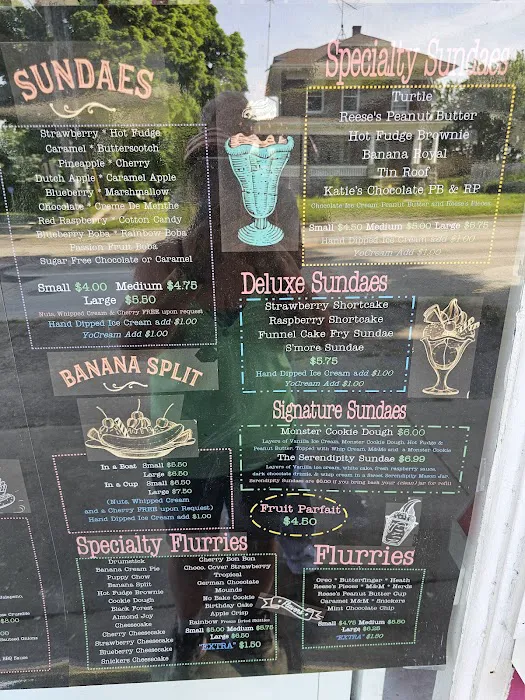 SUNDAES
Strawberry * Hot Fudge
Caramel * Butterscotch
Pineapple * Cherry
Dutch Apple * Caramel Apple
Blueberry * Marshmallow
Chocolate * Creme De Menthe
Red Raspberry * Cotton Candy
Blueberry Boba * Rainbow Boba
Passion Fruit Boba
Sugar Free Chocolate or Caramel
Small $4.00 Medium $4.75
Large $5.50
Nuts, Whipped Cream & Cherry FREE upon request
Hand Dipped Ice Cream add $1.00
YoCream Add $1.00
BANANA SPLIT
In a Boat Small $5.50
Large $6.50
In a Cup Small $6.50
Large $7.50
(Nuts, Whipped Cream
and a Cherry FREE upon Request)
Hand Dipped Ice Cream add $1.00
Specialty Sundaes
Turtle
Reese's Peanut Butter
Hot Fudge Brownie
Banana Royal
Tin Roof
Katie's Chocolate PB & RP
Chocolate Ice Cream, Peanut Butter and Reese's Pieces
Small $4.50 Medium $5.00 Large $6.75
Hand Dipped Ice Cream add $1.00
YoCream Add $1.00
Deluxe Sundaes
Strawberry Shortcake
Raspberry Shortcake
Funnel Cake Fry Sundae
S'more Sundae
$5.75
Hand Dipped Ice Cream add $1.00
YoCream Add $1.00
Signature Sundaes
Monster Cookie Dough $6.00
Layers of Vanilla Ice Cream, Monster Cookie Dough, Hot Fudge &
Peanut Butter. Topped with Whip Cream, M&Ms and a Monster Cookie
The Serendipity Sundae $6.99
Layers of Vanilla ice cream, white cake, fresh raspberry sauce,
dark chocolate drizzle, & whip cream in a Sweet Serendipity Mason Jar
Serendipity Sundaes are $6.00 if you bring back your (clean) jar for refill
Fruit Parfait
$4.50
Specialty Flurries
Drumstick
Banana Cream Pie
Puppy Chow
Banana Split
Hot Fudge Brownie
Cookie Dough
Black Forest
Almond Joy
Cheesecake
Cherry Cheesecake
Strawberry Cheesecake
Blueberry Cheesecake
Snickers Cheesecake
Cherry Bon Bon
Choco. Cover Strawberry
Tropical
German Chocolate
Mounds
No Bake Cookie
Birthday Cake
Apple Crisp
Rainbow Freeze Dried Skittles
Small $5.00 Medium $5.75
Large $6.50
"EXTRA" $1.50
Flurries
Oreo * Butterfinger * Heath
Reese's Pieces * M&M * Nerds
Reese's Peanut Butter Cup
Caramel M&M * Snickers
Mint Chocolate Chip
Small $4.75 Medium $5.50
Large $6.25
"EXTRA" $1.50
BBQ Sauce